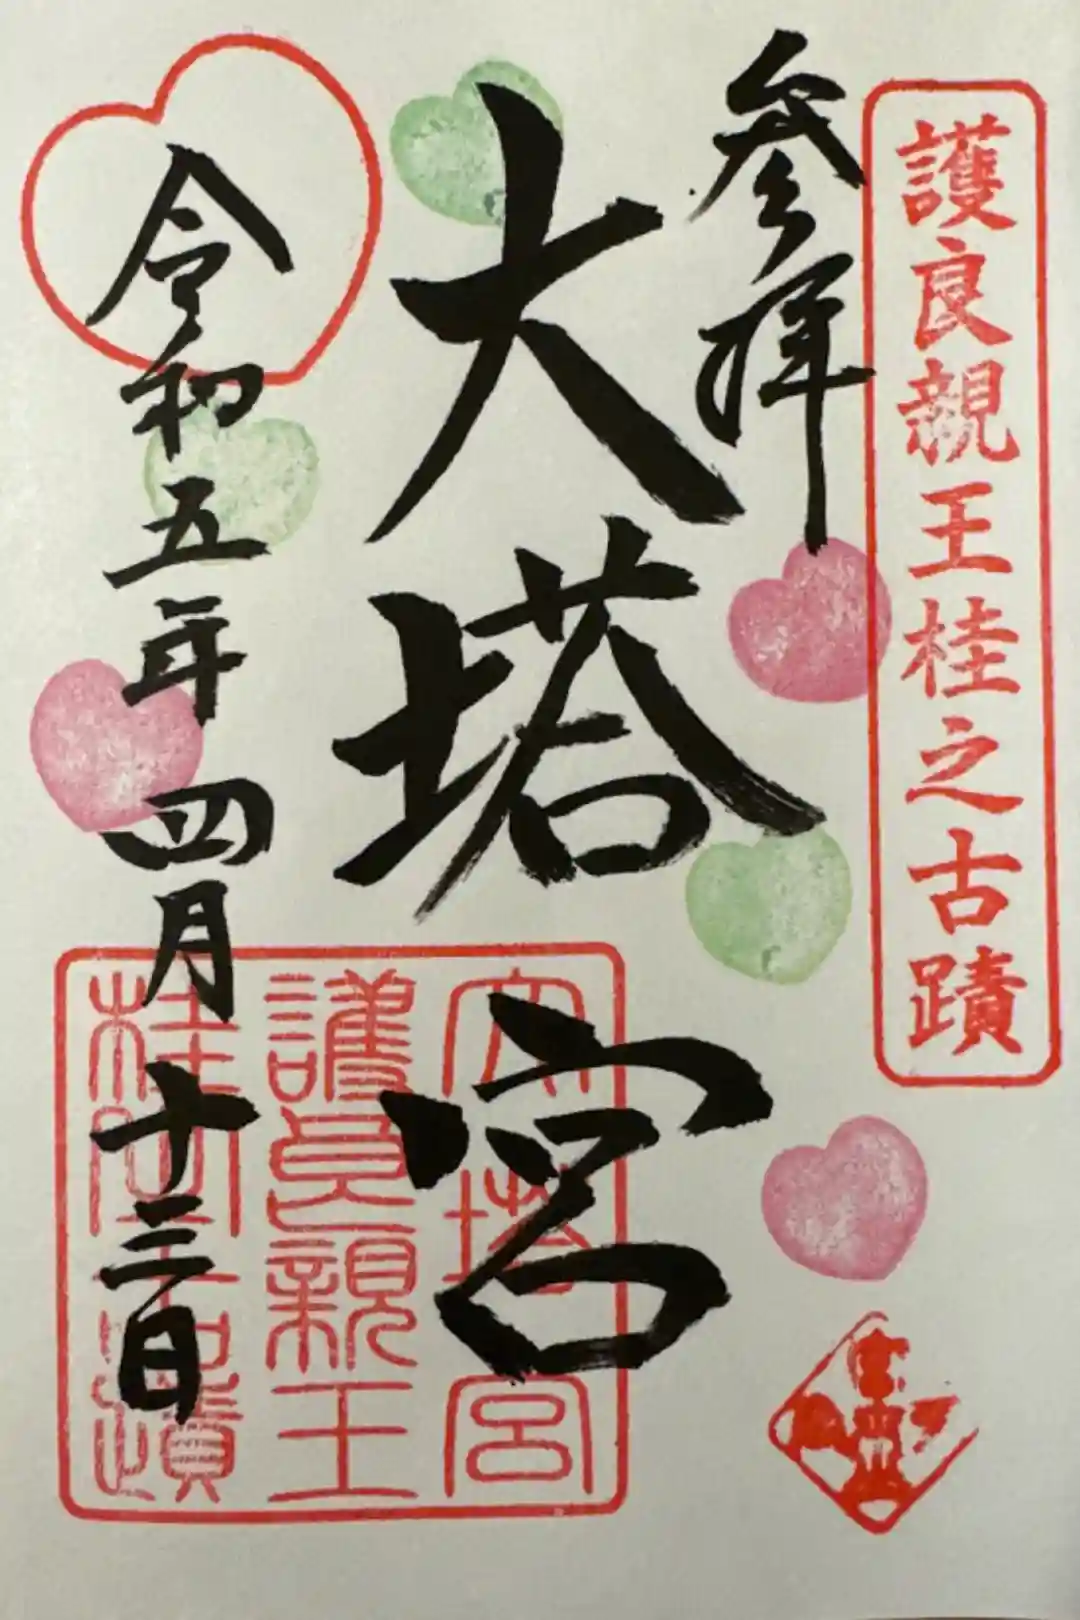 護良親王桂之古蹟
参拝
大塔宮
令和五年四月十三日
大塔宮
護良親王